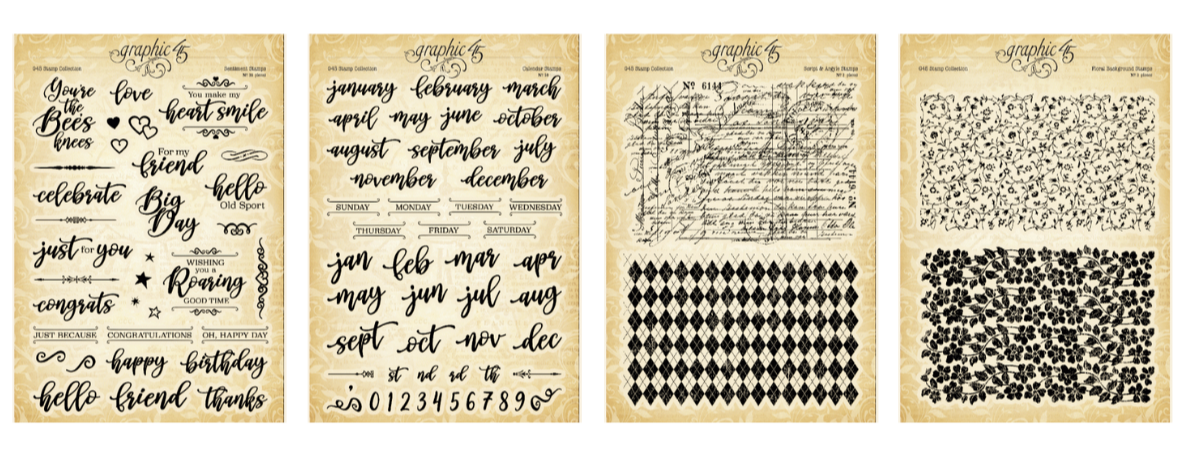 graphic 45
G45 Stamp Collection
Sentiment Stamps
You're
the
Bees
knees
love
You make my
heart smile
For my
friend
celebrate
Big
Day
hello
Old Sport
just for you
WISHING
you a
Roaring
GOOD TIME
congrats
JUST BECAUSE
CONGRATULATIONS
OH, HAPPY DAY
happy birthday
hello friend thanks
graphic 45
G45 Stamp Collection
Calendar Stamps
january february march
april may june october
august september july
november december
SUNDAY MONDAY TUESDAY WEDNESDAY
THURSDAY FRIDAY SATURDAY
jan feb mar apr
may jun jul aug
sept oct nov dec
st nd rd th
0 1 2 3 4 5 6 7 8 9
graphic 45
G45 Stamp Collection
Script & Argyle Stamps
Nº 6144
graphic 45
G45 Stamp Collection
Floral Background Stamps